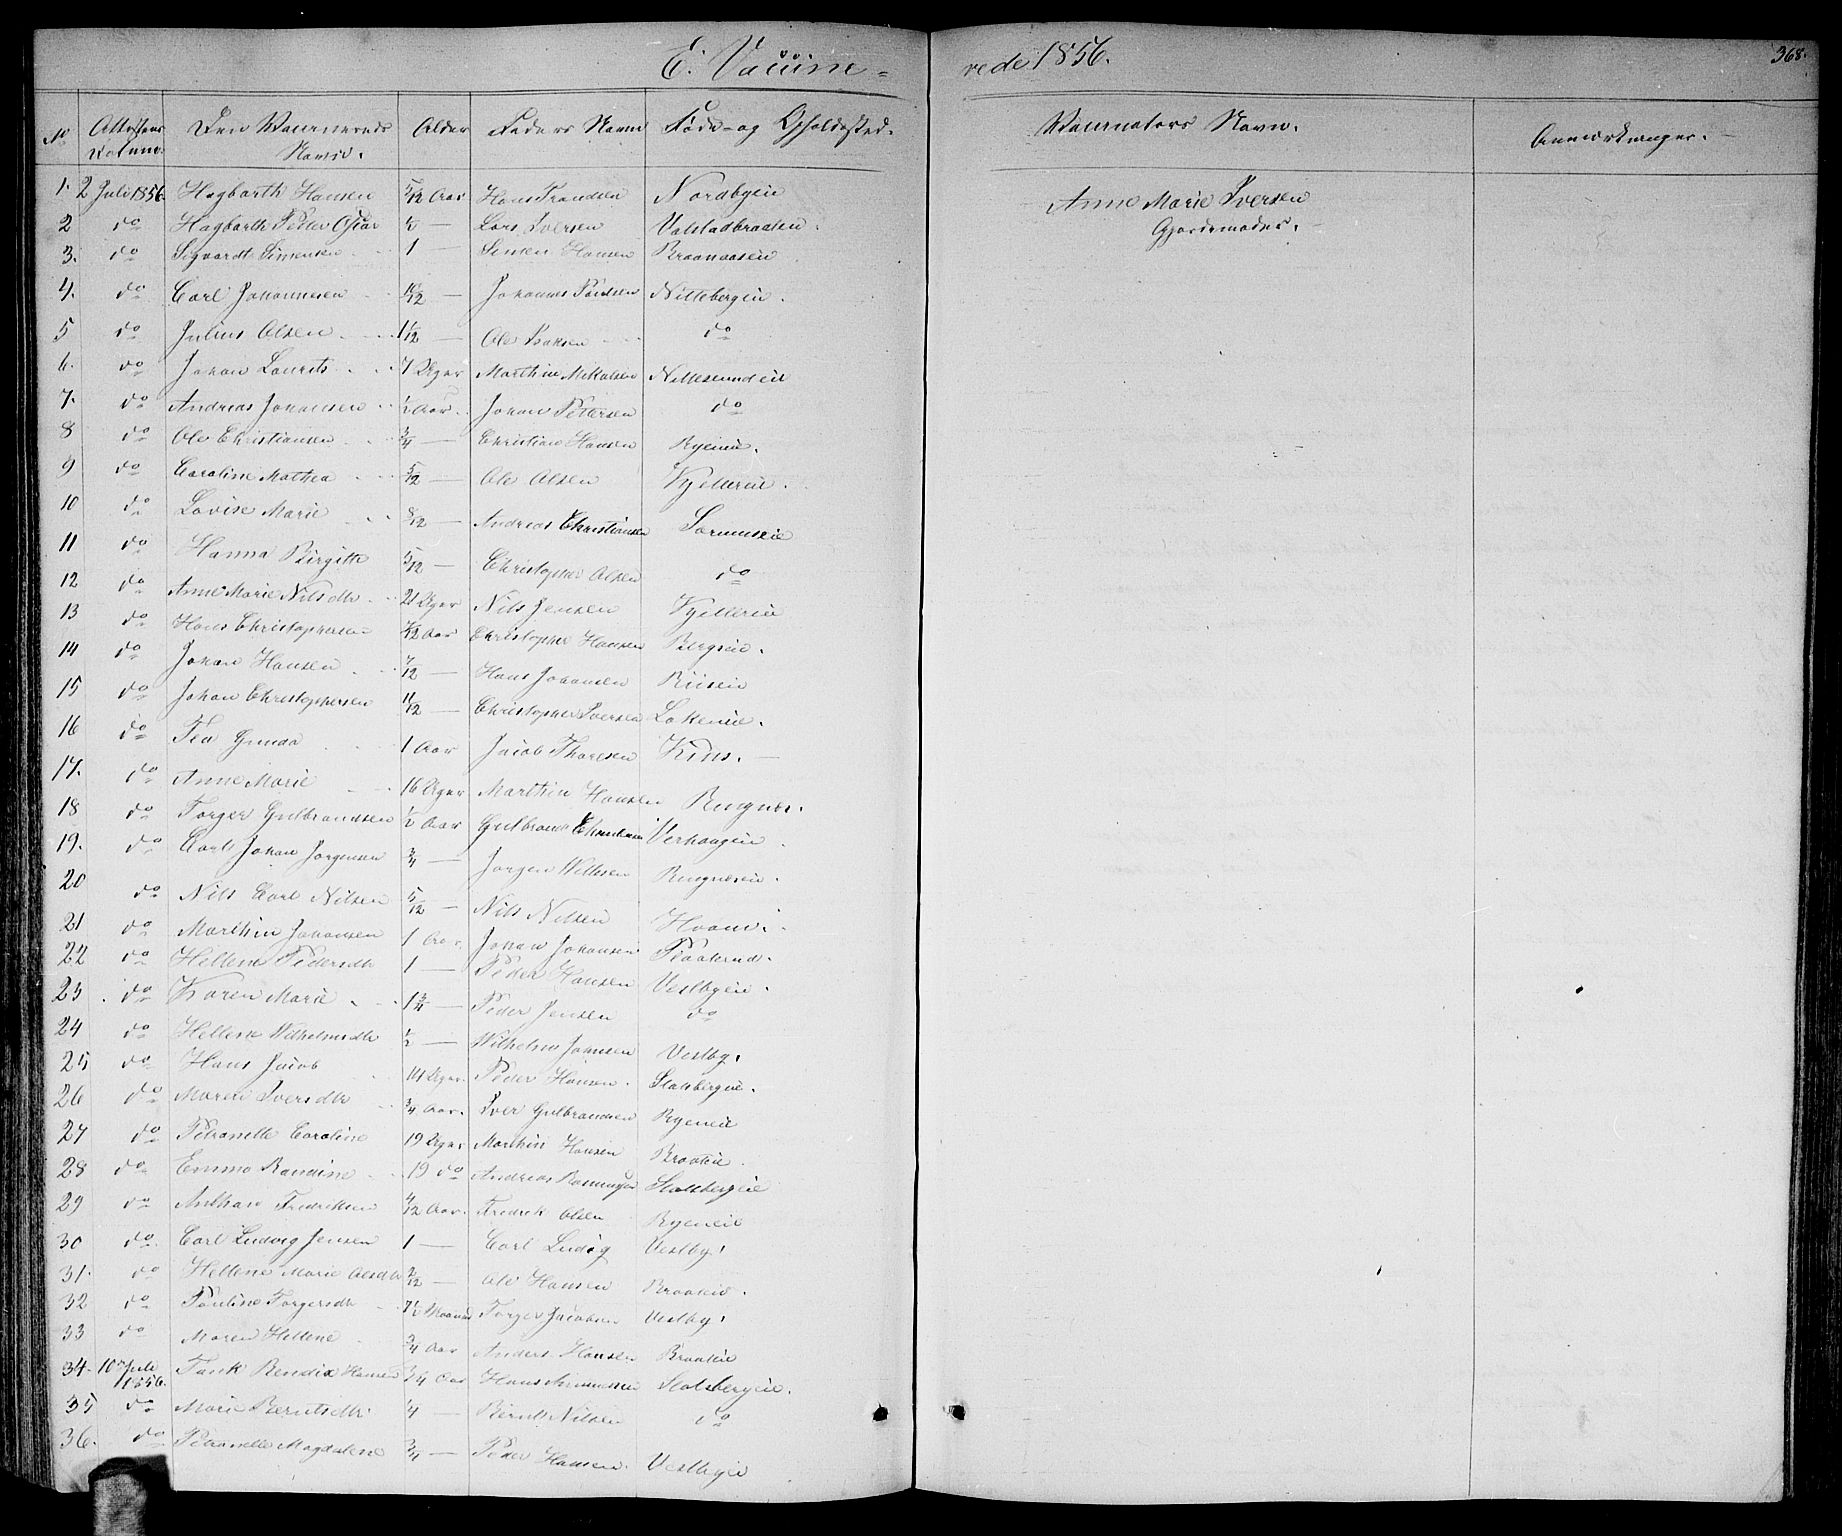 E. Vaccine- rede 1856. 368.
No Attestens Datum. Den Vaccineredes Navne. Alder Faders Navn Føde- og Opholdssted. Vaccinators Navn. Anmærkninger.
1. 2 Juli 1856. Hagbarth Hansen 5/12 Aar Hans Frandsen Nordbyeie Anne Marie Iversen
Gjordemoder.
2 do Hagbarth Peder Lars Iversen Valstadbraaten.
3. do Sigvardt Simensen 1 — Simen Hansen Braanaasen
4. do Carl Johannesen 10/12 — Johannes Paulsen Nittebergeie.
5 do Julius Olsen 1 1/12 — Ole Isaksen do
6. do Johan Laurits 7 Uger Marthin Mikalsen Nittesundeie
7. do Andreas Johansen 1/2 Aar. Johan Petersen do
8 do Ole Christiansen 3/4 — Christian Hansen Ryeneie.
9 do Caroline Mathea 5/12 — Ole Olsen Kjellereie.
10 do Lovise Marie 8/12 — Andreas Christiansen Sørumseie
11 do Hanna Birgitte 5/12 — Christopher Olsen do
12 do Anne Marie Nilsdtr 21 Uger Nils Jensen Kjellereie
13 do Hans Christophersen 7/12 Aar Christopher Hansen Bergseie.
14 do Johan Hansen 7/12 — Hans Johansen Riiseie
15 do Johan Christophersen 11/12 — Christopher Iversen Lakeneie.
16 do Tea Gunda 1 Aar Jacob Thoresen
17. do Anne Marie 16 Uger Marthin Hansen Ringnæs.
18 do Torger Gulbrandsen 1/2 Aar Gulbrand Verhaugeie.
19. do Carl Johan Jørgensen 3/4 — Jørgen Ringnæseie.
20 do Nils Carl Nilsen 5/12 — Nils Nilsen
21 do Marthin Johansen 1 Aar. Johan Johansen
22 do Hellene Pedersdtr 1 — Peder Hansen Vestbyeie.
23. do Karen Marie 1 3/4 — Peder Jensen do
24 do Hellene Wilhelmsdtr 1/2 — Wilhelm Johnsen Vestby.
25 do Hans Jacob 14 Uger. Peder Hansen. Stalsbergeie.
26 do Maren Iversdtr 3/4 Aar. Iver Gulbrandsen Ryeneie
27 do Petronelle Caroline 19 Uger Marthin Hansen Braateie.
28 do Emma Randine 19 do Andreas Stalsbergeie
29 do Anthon Fredriksen 4/12 Aar. Fredrik Olsen Ryeneie
30 do. Carl Ludvig Jensen 1 — Carl Ludvig Vestby.
31. do Hellene Marie Olsdtr 2/12 — Ole Hansen Braateie.
32 do Pauline Torgersdtr 7 1/2 Maaned Torger Jacobsen Vestby.
33 do Maren Hellene 3/4 Aar Anders Hansen Braateie
34. 10de Juli 1856. Tank Bendix Hansen 3/4 Aar Hans Stalsbergeie.
35 do Marie Berntsdtr 1/4 — Bernt Nilsen do
36. do Petronelle Magdalene 3/4 — Peder Hansen. Vestbyeie